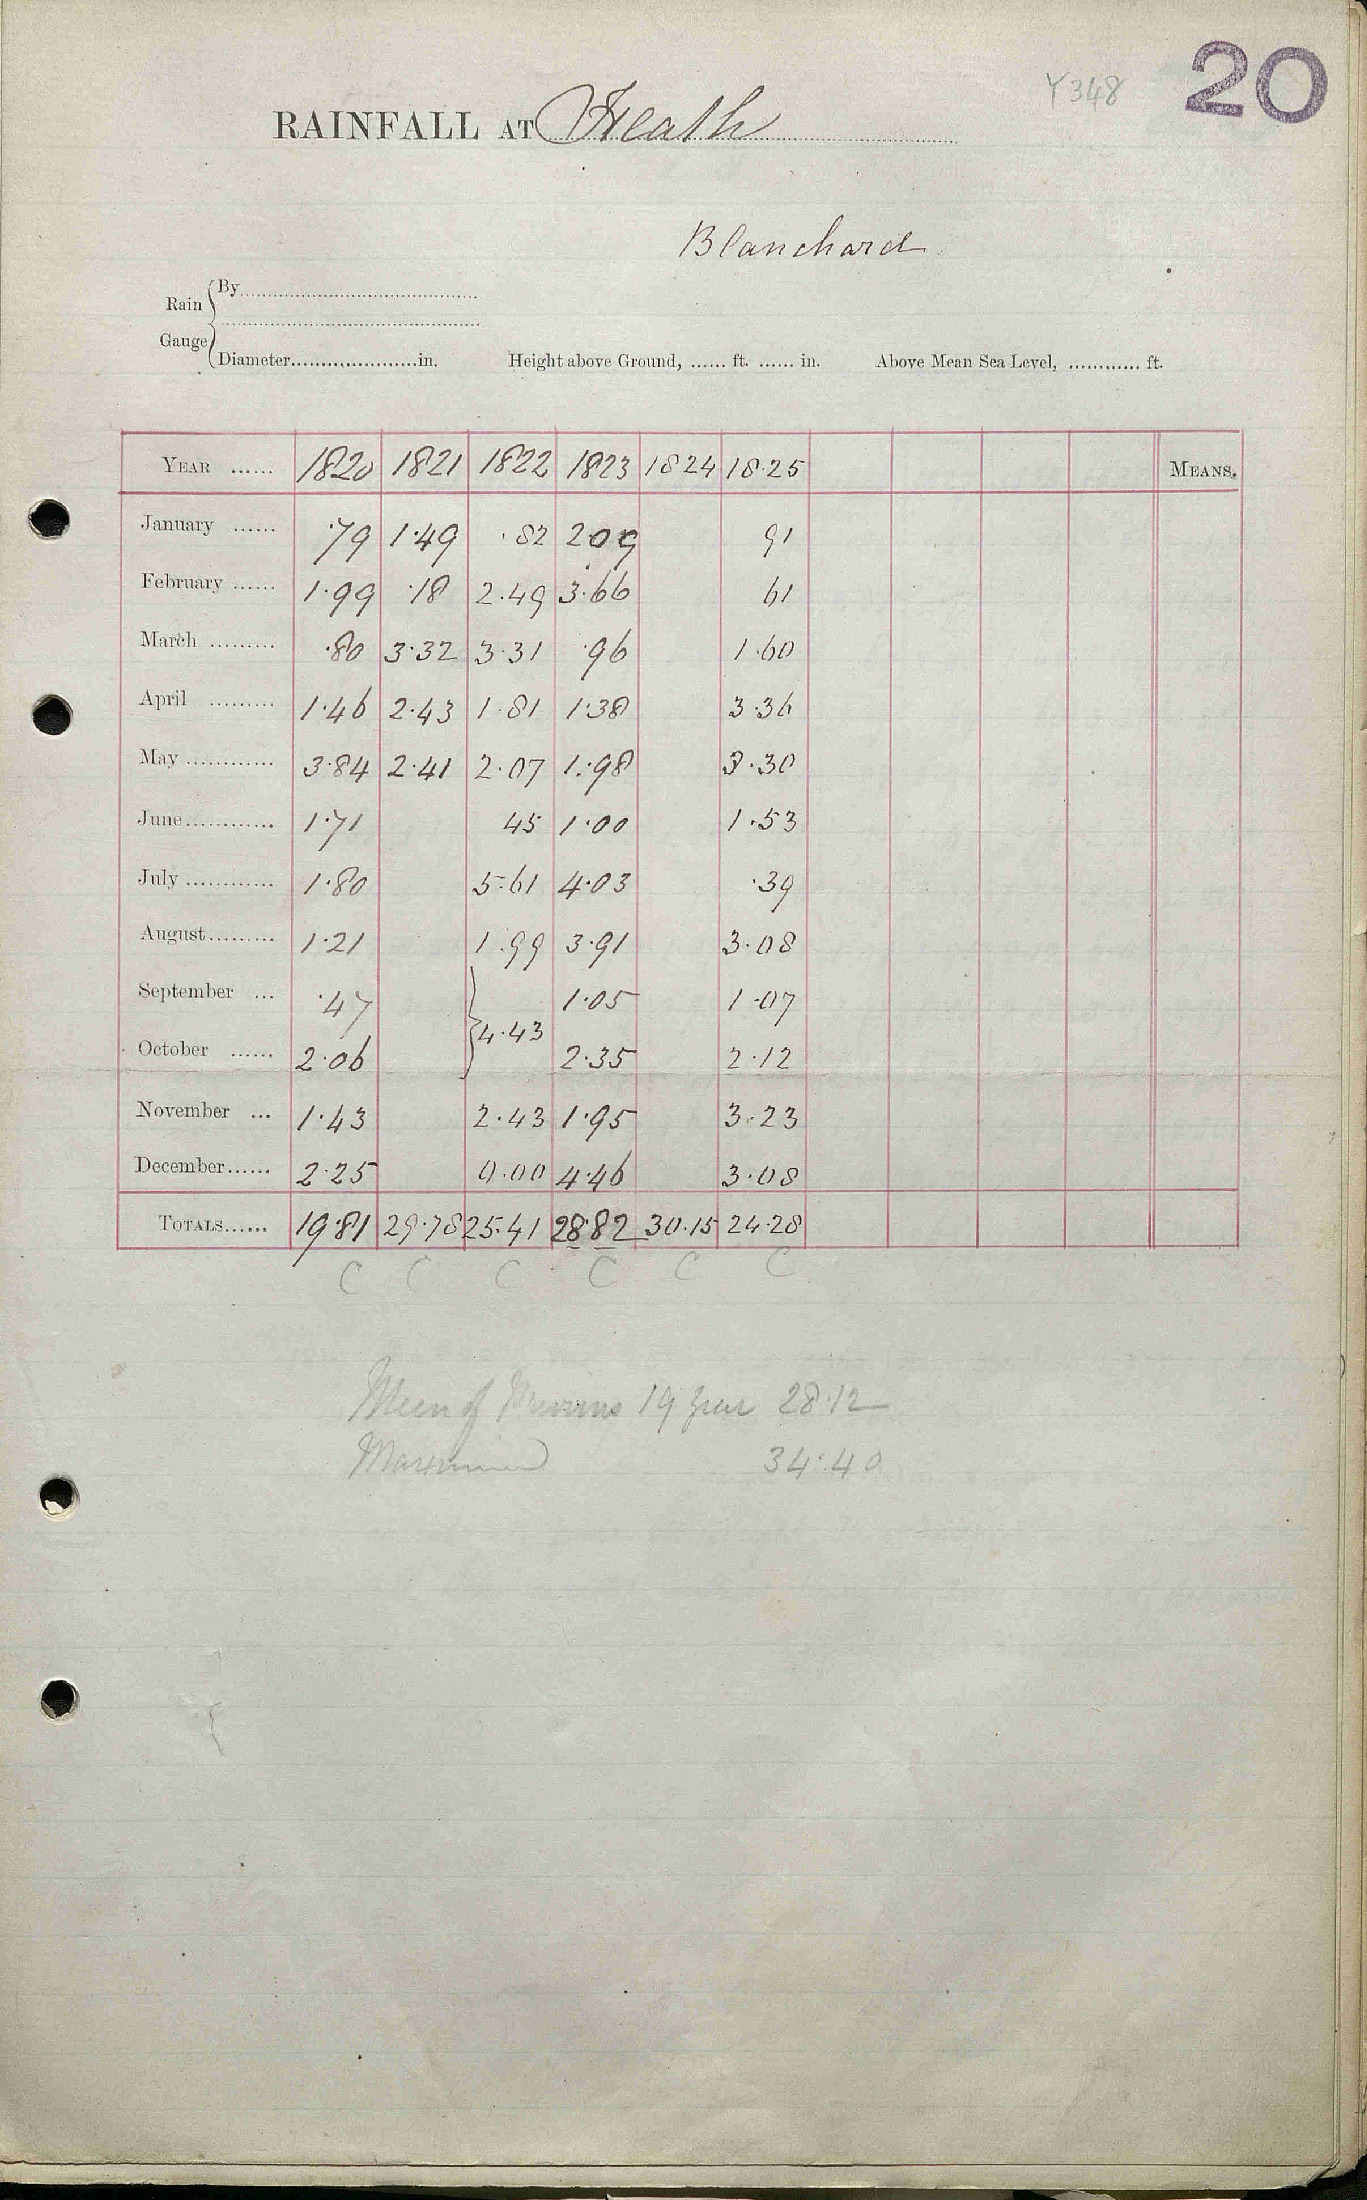 Y348 20
RAINFALL AT Heath
Blanchard
Rain Gauge
By
Diameter in. Height above Ground, ...... ft. ...... in. Above Mean Sea Level, ............ ft.
YEAR ...... 1820 1821 1822 1823 1824 18.25 MEANS.
January ...... .79 1.49 .82 2.09 91
February ...... 1.99 .18 2.49 3.66 61
March ......... .80 3.32 3.31 .96 1.60
April ......... 1.46 2.43 1.81 1.38 3.36
May ............ 3.84 2.41 2.07 1.98 3.30
June ............ 1.71 45 1.00 1.53
July ............ 1.80 5.61 4.03 .39
August ......... 1.21 1.99 3.91 3.08
September ... .47 1.05 1.07
4.43
October ...... 2.06 2.35 2.12
November ... 1.43 2.43 1.95 3.23
December ...... 2.25 0.00 4.46 3.08
TOTALS ...... 19.81 29.78 25.41 28.82 30.15 24.28
C C C C C C
Mean of Previous 19 year 28.12
Maximum 34.40